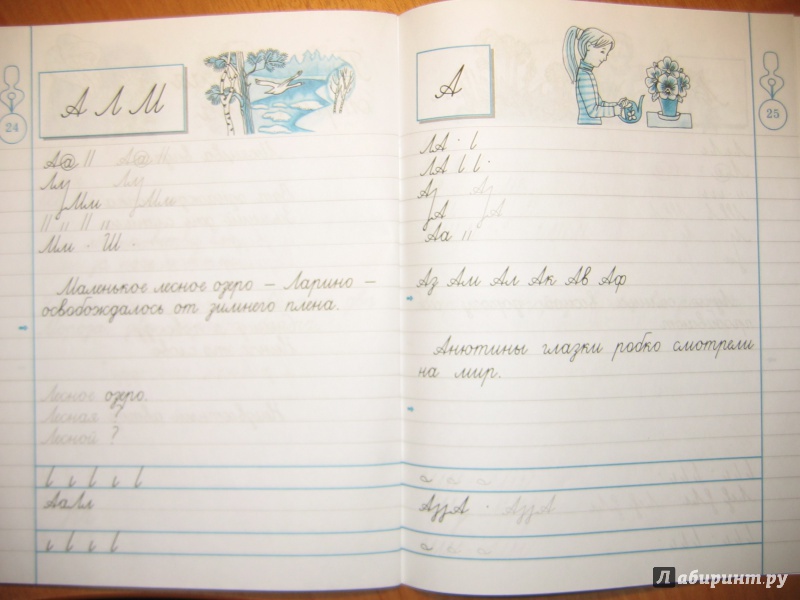 А Л М
24
Аа // Аа //
Лл Лл
Мм Мм
// // // //
Мм · Ш ·
Маленькое лесное озеро – Ларино –
освобождалось от зимнего плена.
Лесное озеро.
Лесная ?
Лесной ?
АаЛл
А
25
ЛА · l
ЛА l l ·
Аз Аз
А А
Аа //
Аз Ам Ал Ак Ав Аф
Анютины глазки робко смотрели
на мир.
АззА · АззА
Лабиринт.ру